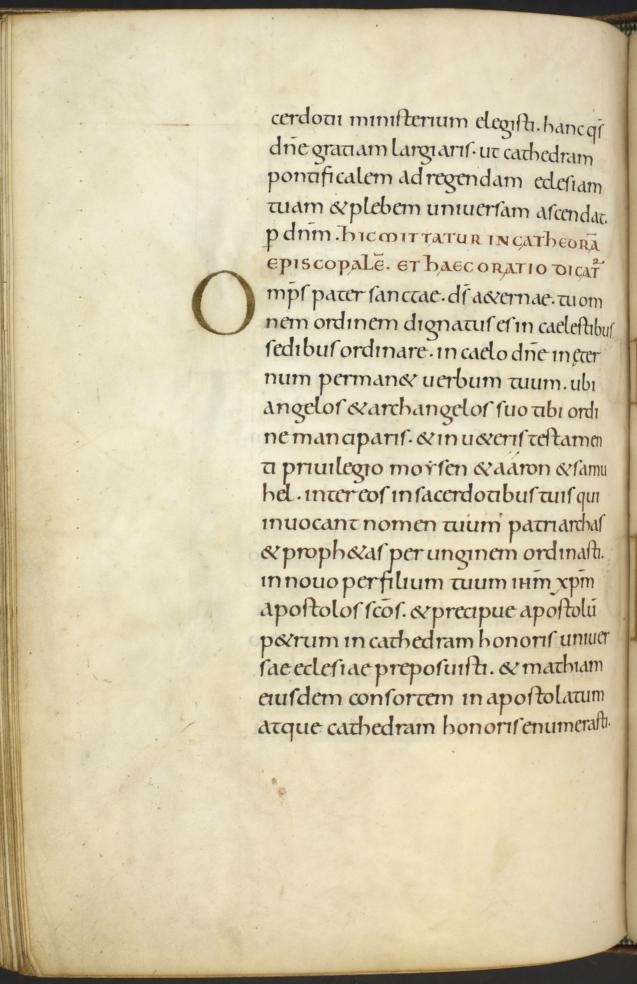 cerdotii ministerium elegisti. hanc qs̄
dn̄e gratiam largiaris. ut cathedram
pontificalem ad regendam eclesiam
tuam & plebem uniuersam ascendat.
p̄ dnm̄. HIC MITTATUR IN CATHEDRĀ
EPISCOPALĒ. ET HAEC ORATIO DICAT᷑
Omp̄s pater sanctae. ds̄ a&ernae. tu om
nem ordinem dignatus es in caelestibus
sedibus ordinare. in caelo dn̄e in ęter
num perman& uerbum tuum. ubi
angelos & archangelos suo tibi ordi
ne manciparis. & in u&eris testamen
ti priuilegio moẏsen & aaron & samu
hel. inter eos in sacerdotibus tuis qui
inuocant nomen tuum patriarchas
& proph&as per unginem ordinasti.
in nouo per filium tuum ihm̄ xpm̄
apostolos scōs. & precipue apostolū
p&rum in cathedram honoris uniuer
sae eclesiae preposuisti. & mathiam
eiusdem consortem in apostolatum
atque cathedram honoris enumerasti.